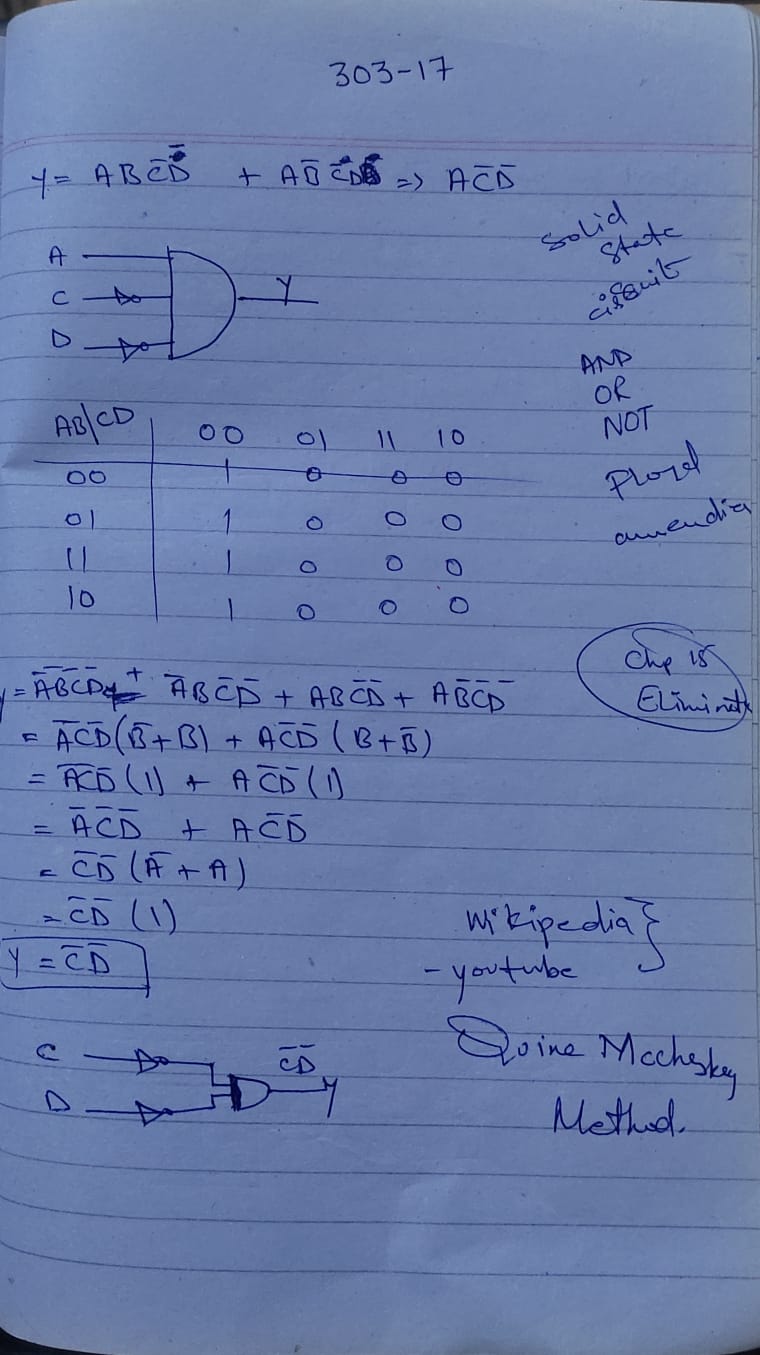 303-17
Y = ABC̅D̅ + AB̅C̅D̅ => AC̅D̅
solid
state
A
C
D
Y
AND
OR
NOT
AB|CD 00 01 11 10
00 1 0 0 0
01 1 0 0 0
11 1 0 0 0
10 1 0 0 0
Chp 15
Eliminate
Y = A̅B̅C̅D̅ + A̅BC̅D̅ + ABC̅D̅ + AB̅C̅D̅
= A̅C̅D̅ (B̅+B) + AC̅D̅ (B+B̅)
= A̅C̅D̅ (1) + AC̅D̅ (1)
= A̅C̅D̅ + AC̅D̅
= C̅D̅ (A̅ + A)
= C̅D̅ (1)
Y = C̅D̅
Wikipedia }
- youtube
Quine Mcchesky
Method.
C
D
C̅D̅
Y